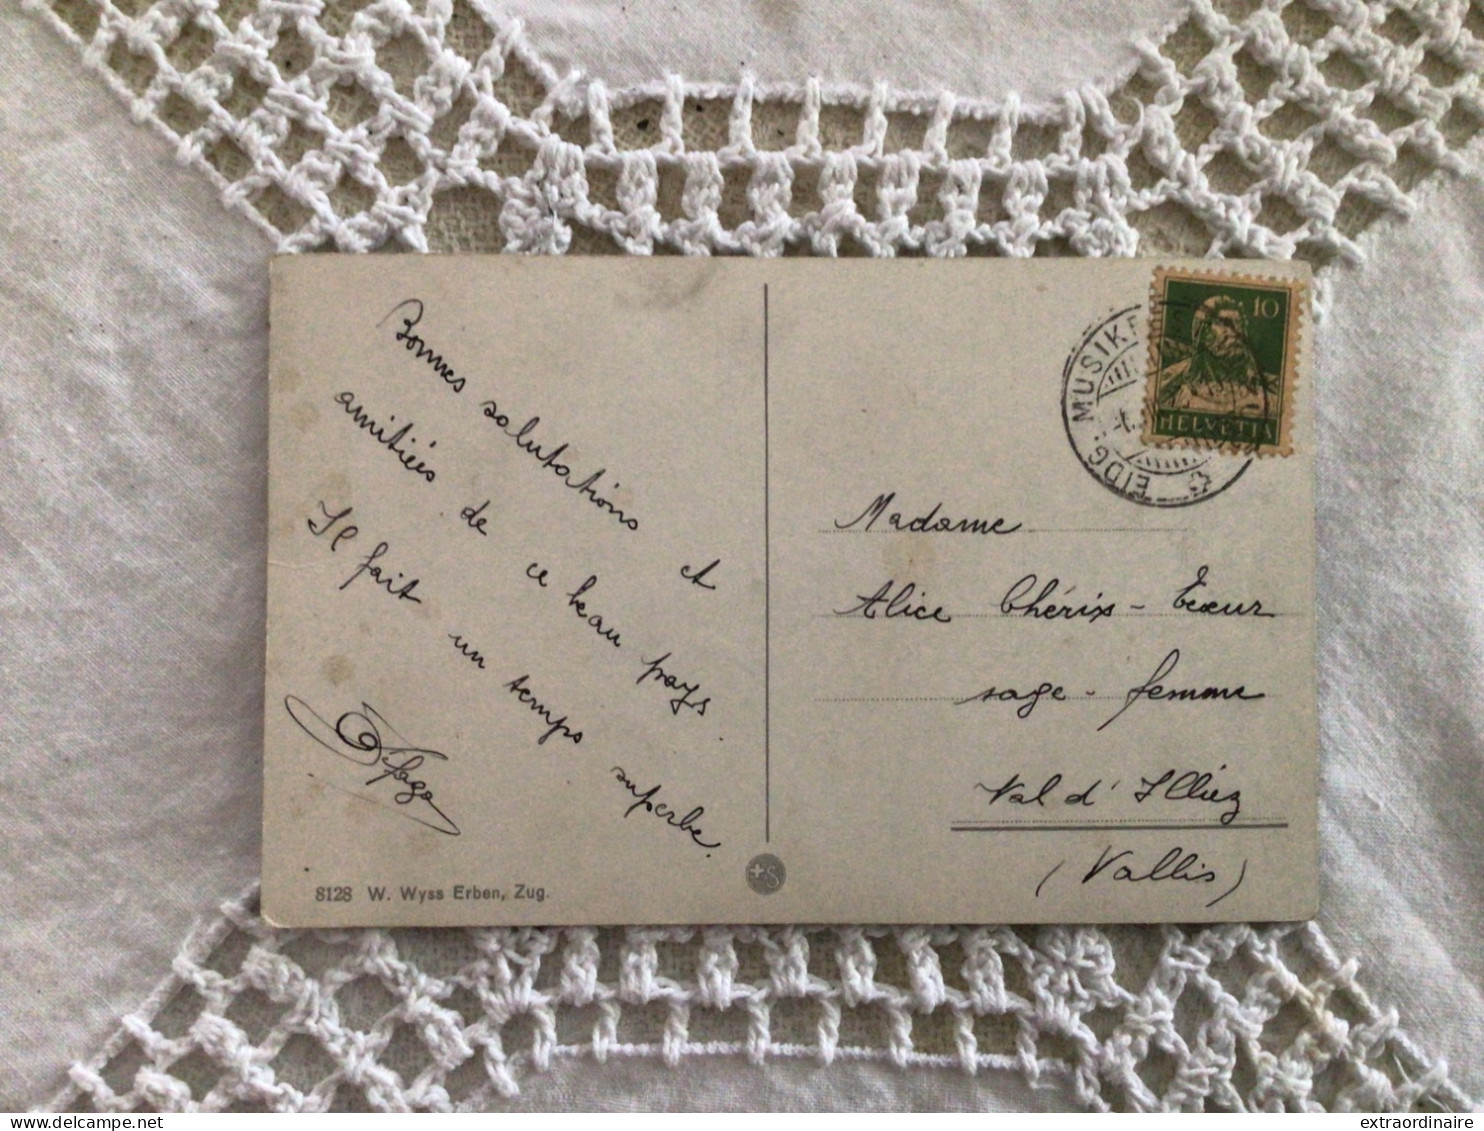 Bonnes salutations et
amitiées de ce beau pays.
Il fait un temps superbe.
8128 W. Wyss Erben, Zug.
+S
EIDG. MUSIKF
10
HELVETIA
Madame
Alice Chérix - Ecœur
sage-femme
Val d'Illiez
(Vallis)
extraordinaire